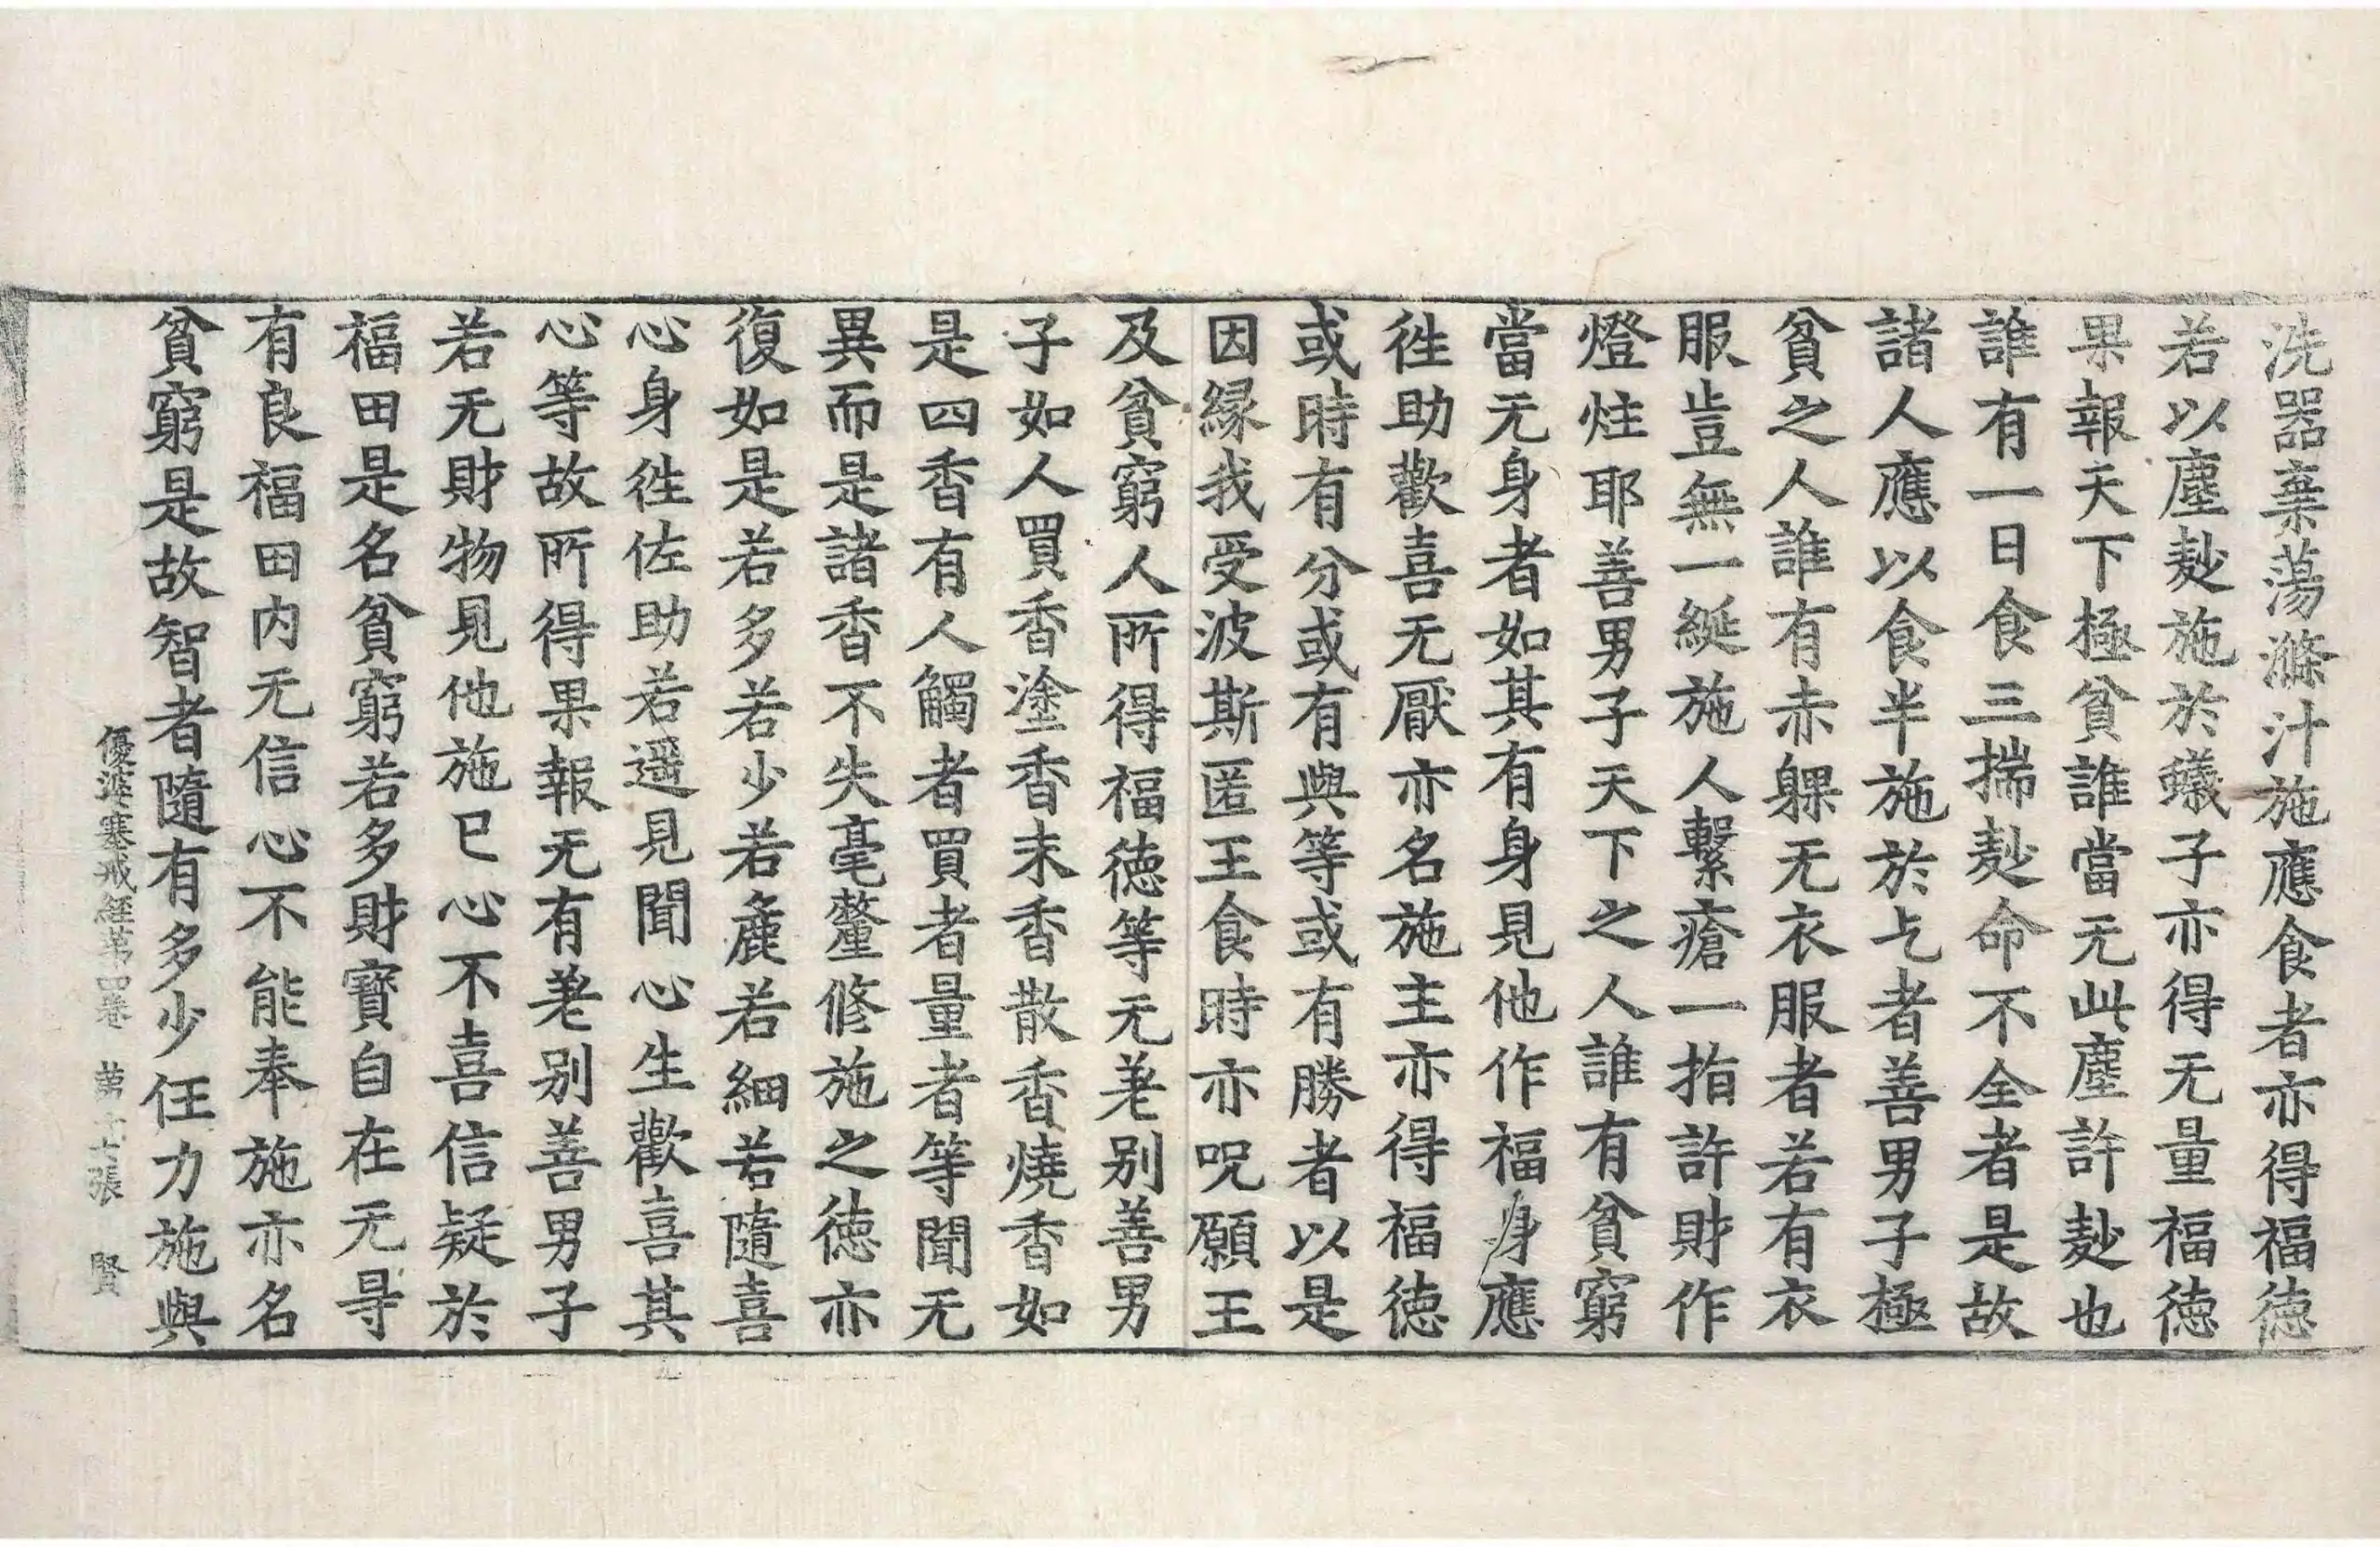 洗器棄蕩滌汁施應食者亦得福徳
若以塵麨施於蟻子亦得无量福徳
果報天下極貧誰當无此塵許麨也
誰有一日食三揣麨命不全者是故
諸人應以食半施於乞者善男子極
貧之人誰有赤躶无衣服者若有衣
服豈無一綖施人繫瘡一指許財作
燈炷耶善男子天下之人誰有貧窮
當无身者如其有身見他作福身應
徃助歡喜无厭亦名施主亦得福徳
或時有分或有與等或有勝者以是
因縁我受波斯匿王食時亦呪願王
及貧窮人所得福徳等无差别善男
子如人買香塗香末香散香燒香如
是四香有人觸者買者量者等聞无
異而是諸香不失毫釐修施之徳亦
復如是若多若少若麁若細若隨喜
心身徃佐助若遥見聞心生歡喜其
心等故所得果報无有差别善男子
若无財物見他施已心不喜信疑於
福田是名貧窮若多財寳自在无㝵
有良福田内无信心不能奉施亦名
貧窮是故智者隨有多少任力施與
優婆塞戒經第四卷　第十七張　賢